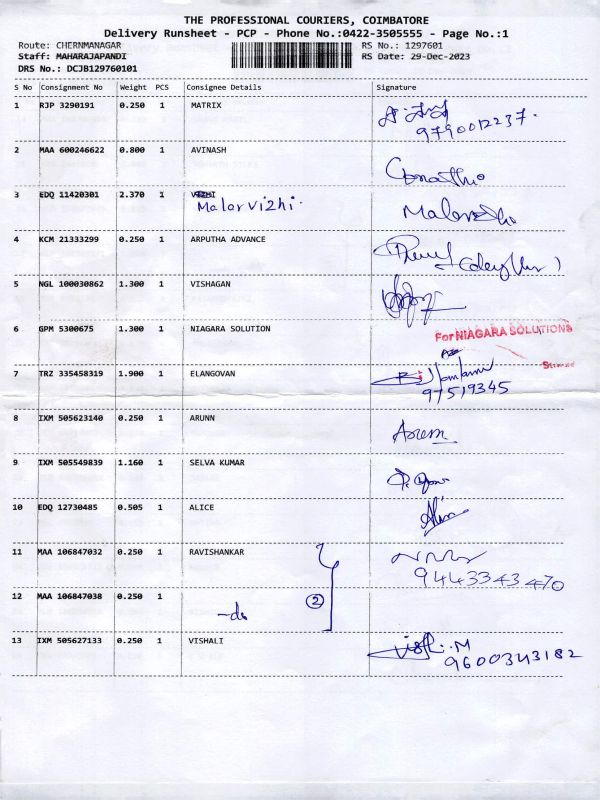 THE PROFESSIONAL COURIERS, COIMBATORE
Delivery Runsheet - PCP - Phone No.:0422-3505555 - Page No.:1
Route: CHERNMANAGAR RS No.: 1297601
Staff: MAHARAJAPANDI RS Date: 29-Dec-2023
DRS No.: DCJB129760101
S No Consignment No Weight PCS Consignee Details Signature
1 RJP 3290191 0.250 1 MATRIX
9790012237.
2 MAA 600246622 0.800 1 AVINASH
3 EDQ 11420301 2.370 1
Malarvizhi.
4 KCM 21333299 0.250 1 ARPUTHA ADVANCE
5 NGL 100030862 1.300 1 VISHAGAN
6 GPM 5300675 1.300 1 NIAGARA SOLUTION
For NIAGARA SOLUTIONS
7 TRZ 335458319 1.900 1 ELANGOVAN
97519345
8 IXM 505623140 0.250 1 ARUNN
9 IXM 505549839 1.160 1 SELVA KUMAR
10 EDQ 12730485 0.505 1 ALICE
11 MAA 106847032 0.250 1 RAVISHANKAR
9443343470
12 MAA 106847038 0.250 1
-do 2
13 IXM 505627133 0.250 1 VISHALI
9600343182